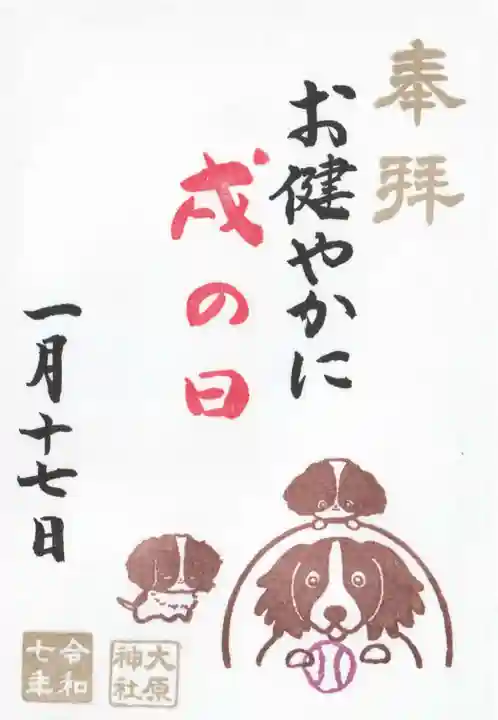 奉拝
お健やかに
戌の日
一月十七日
大原神社
令和七年